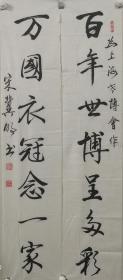 为上海世博會作
百年世博呈多彩
万國衣冠念一家
宋冀鵬书